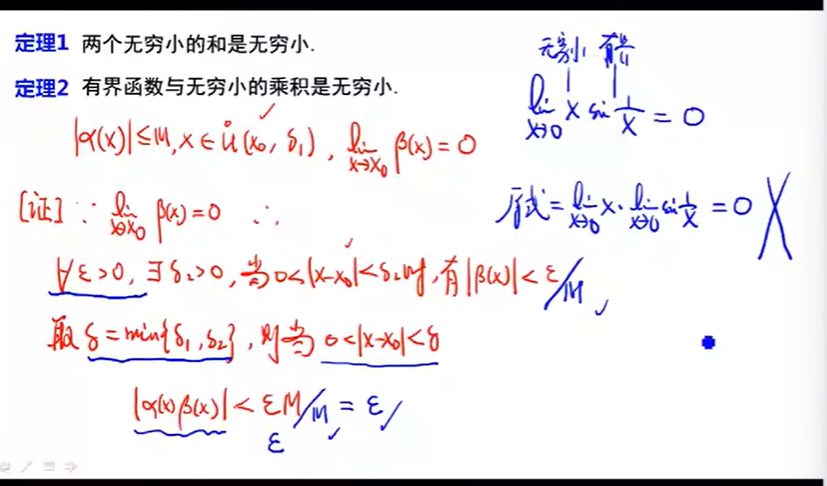 定理1 两个无穷小的和是无穷小.
定理2 有界函数与无穷小的乘积是无穷小.
|α(x)|≤M, x∈Ů(x₀, δ₁), lim x→x₀ β(x)=0
[证] ∵ lim x→x₀ β(x)=0 ∴
∀ε>0, ∃δ₂>0, 当0<|x-x₀|<δ₂时, 有|β(x)|<ε/M
取δ=min{δ₁,δ₂}, 则当 0<|x-x₀|<δ
|α(x)β(x)|<εM/M=ε
ε
无穷小 有界
lim x→0 x sin 1/x = 0
原式=lim x→0 x·lim x→0 sin 1/x = 0 ╳